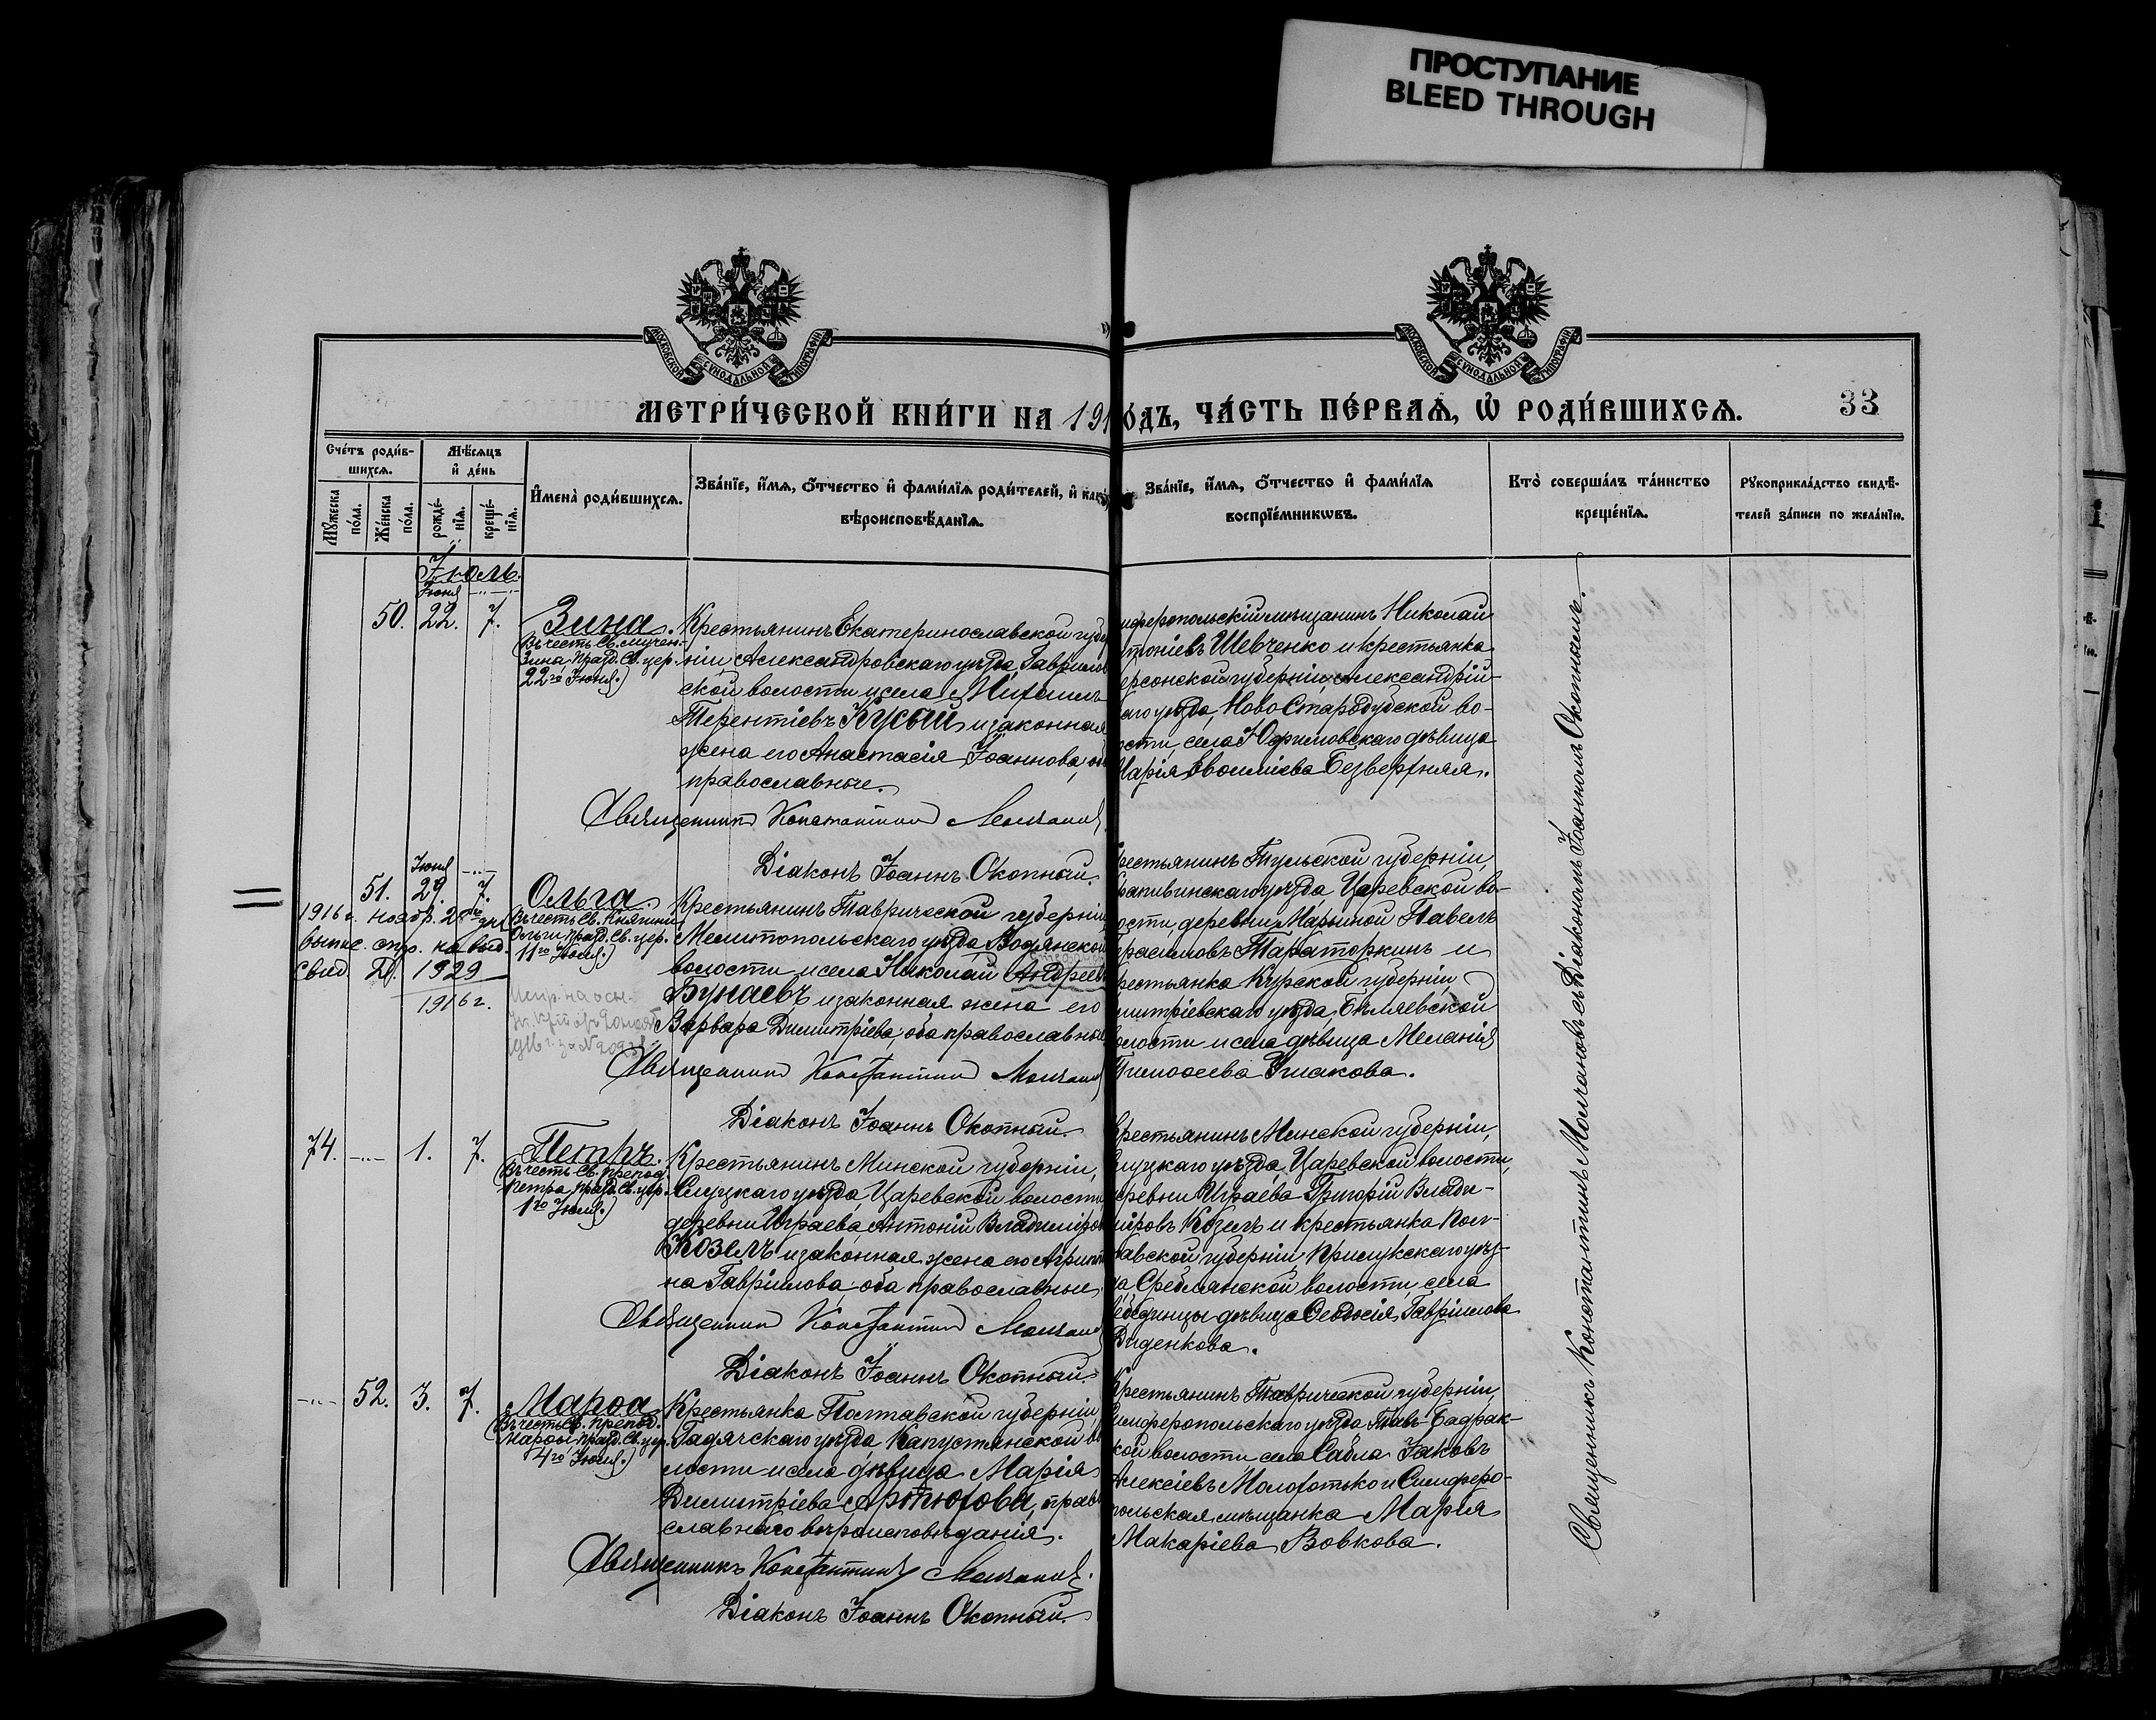 ПРОСТУПАНИЕ
BLEED THROUGH
МОСКОВСКОЙ СУНОДАЛЬНОЙ ТИПОГРАФІИ
МОСКОВСКОЙ СУНОДАЛЬНОЙ ТИПОГРАФІИ
МЕТРИ́ЧЕСКОЙ КНИ́ГИ НА 191
О́ДЪ, ЧА́СТЬ ПЕ́РВАѦ, Ѡ РОДИ́ВШИХСѦ.
33
Сче́тъ роди́в-
шихсѧ.
Мѣ́сѧцъ
и҆ де́нь
Мꙋ́жеска
по́ла.
Же́нска
по́ла.
рожде́-
нїѧ.
креще́-
нїѧ.
И҆мена̀ роди́вшихсѧ.
Зва́нїе, и҆́мѧ, ѻ҆́тчество и҆ фами́лїѧ роди́телей, и҆ как
вѣроисповѣ́данїѧ.
Зва́нїе, и҆́мѧ, ѻ҆́тчество и҆ фами́лїѧ
воспрїе́мникѡвъ.
Кто̀ соверша́лъ та́инство
креще́нїѧ.
Рꙋкоприкла́дство свидѣ́-
телей за́писи по жела́нїю.
Іюль.
Іюня -..-
50. 22. 7.
Зина.
Въ честь Св. мучен.
Зина, празд. Св. цер.
22го Іюня.)
Крестьянинъ Екатеринославской губер
ніи, Александровскаго уѣзда, Гаврилов
ской волости и села Михаилъ
Терентіевъ Кусый и законная
жена его Анастасія Іоаннова, об
православные.
Священникъ Константинъ Молчановъ
Діаконъ Іоаннъ Окопный.
мферопольскій мѣщанинъ Николай
тоніевъ Шевченко и крестьянка
ерсонской губерніи, Александрій-
аго уѣзда, Ново Стародубской во-
ости, села дѣвица
Марія Безверхняя.
Іюня -..-
51. 29. 7.
1916 г. ноябр. 2
выпис. на выд.
свид. 1929
1916 г.
Ольга.
Въ честь Св. Княгини
Ольги, празд. Св. цер.
11го Іюля.)
Крестьянинъ Таврической губерніи,
Мелитопольскаго уѣзда, Водянской
волости и села Николай Андреев
Бунаевъ и законная жена его
Варвара Димитріева, оба православные
Священникъ Константинъ Молчановъ
Діаконъ Іоаннъ Окопный.
рестьянинъ Тульской губерніи,
рапивинскаго уѣзда, Царевской во-
ости, деревни Марьиной Павелъ
расимовъ Тараторкинъ и
рестьянка Курской губерніи,
митріевскаго уѣзда, Бѣляевской
олости и села дѣвица Меланія
Тимоѳеева Ушакова.
74. -..- 1. 7.
Петръ.
Въ честь Св. препод.
Петра, празд. Св. цер.
1го Іюля.)
Крестьянинъ Минской губерніи,
Слуцкаго уѣзда, Царевской волости
деревни Играева, Антоній Владиміров
Козелъ и законная жена его Агриппи
на Гавріилова, оба православные
Священникъ Константинъ Молчановъ
Діаконъ Іоаннъ Окопный.
Крестьянинъ Минской губерніи,
луцкаго уѣзда, Царевской волости,
еревни Играева Григорій Влади-
міровъ Козелъ и крестьянка Пол-
авской губерніи, Прилукскаго уѣз-
а, Среблянской волости, села
дѣвица Ѳеодосія Гавріилова
Диденкова.
-..- 52. 3. 7.
Марѳа
Въ честь Св. препод.
Марѳы, празд. Св. цер.
4го Іюля.)
Крестьянка Полтавской губерніи,
Гадячскаго уѣзда, Капустянской во
лости и села дѣвица Марія
Димитріева Артюхова, право
славнаго вѣроисповѣданія.
Священникъ Константинъ Молчановъ.
Діаконъ Іоаннъ Окопный.
Крестьянинъ Таврической губерніи,
имферопольскаго уѣзда, Тавъ-Бадрак-
кой волости села Сабла Іаковъ
Алексіевъ Молохотько и Симферо-
польская мѣщанка Марія
Макаріева Вовкова.
Священникъ Константинъ Молчановъ съ Діакономъ Іоанномъ Окопнымъ.